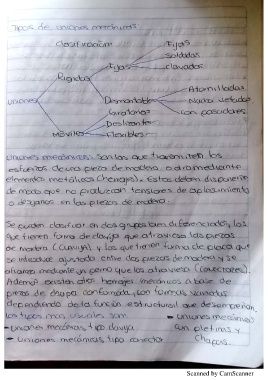 Tipos de uniones mecánicas
Clasificación
Fijas
Soldadas
Fijas
clavadas
Rígidas
Atornilladas
Uniones
Desmontables
con pasadores
Giratorias
Deslizantes
Móviles
Flexibles
Uniones mecánicas: son las que transmiten los
esfuerzos de una pieza de madera a otra mediante
elementos metálicos (herrajes). Estas deben disponerse
de modo que no produzcan tensiones de aplastamiento
o desgarros en las piezas de madera.
Se pueden clasificar en dos grupos bien diferenciados, las
que tienen forma de clavija que atraviesa las piezas
de madera (clavija) y los que tienen forma de placa que
se introduce ajustado entre dos piezas de madera y se
mediante un perno que los atraviesa (conectores).
Además existen otros herrajes mecánicos a base de
piezas de chapa conformada, con formas variadas
dependiendo de la función estructural que desempeñan,
los tipos mas usuales son:
- uniones mecánicas
- uniones mecánicas, tipo clavija
con pletinas y
- Uniones mecánicas, tipo conector
Chapas.
Scanned by CamScanner